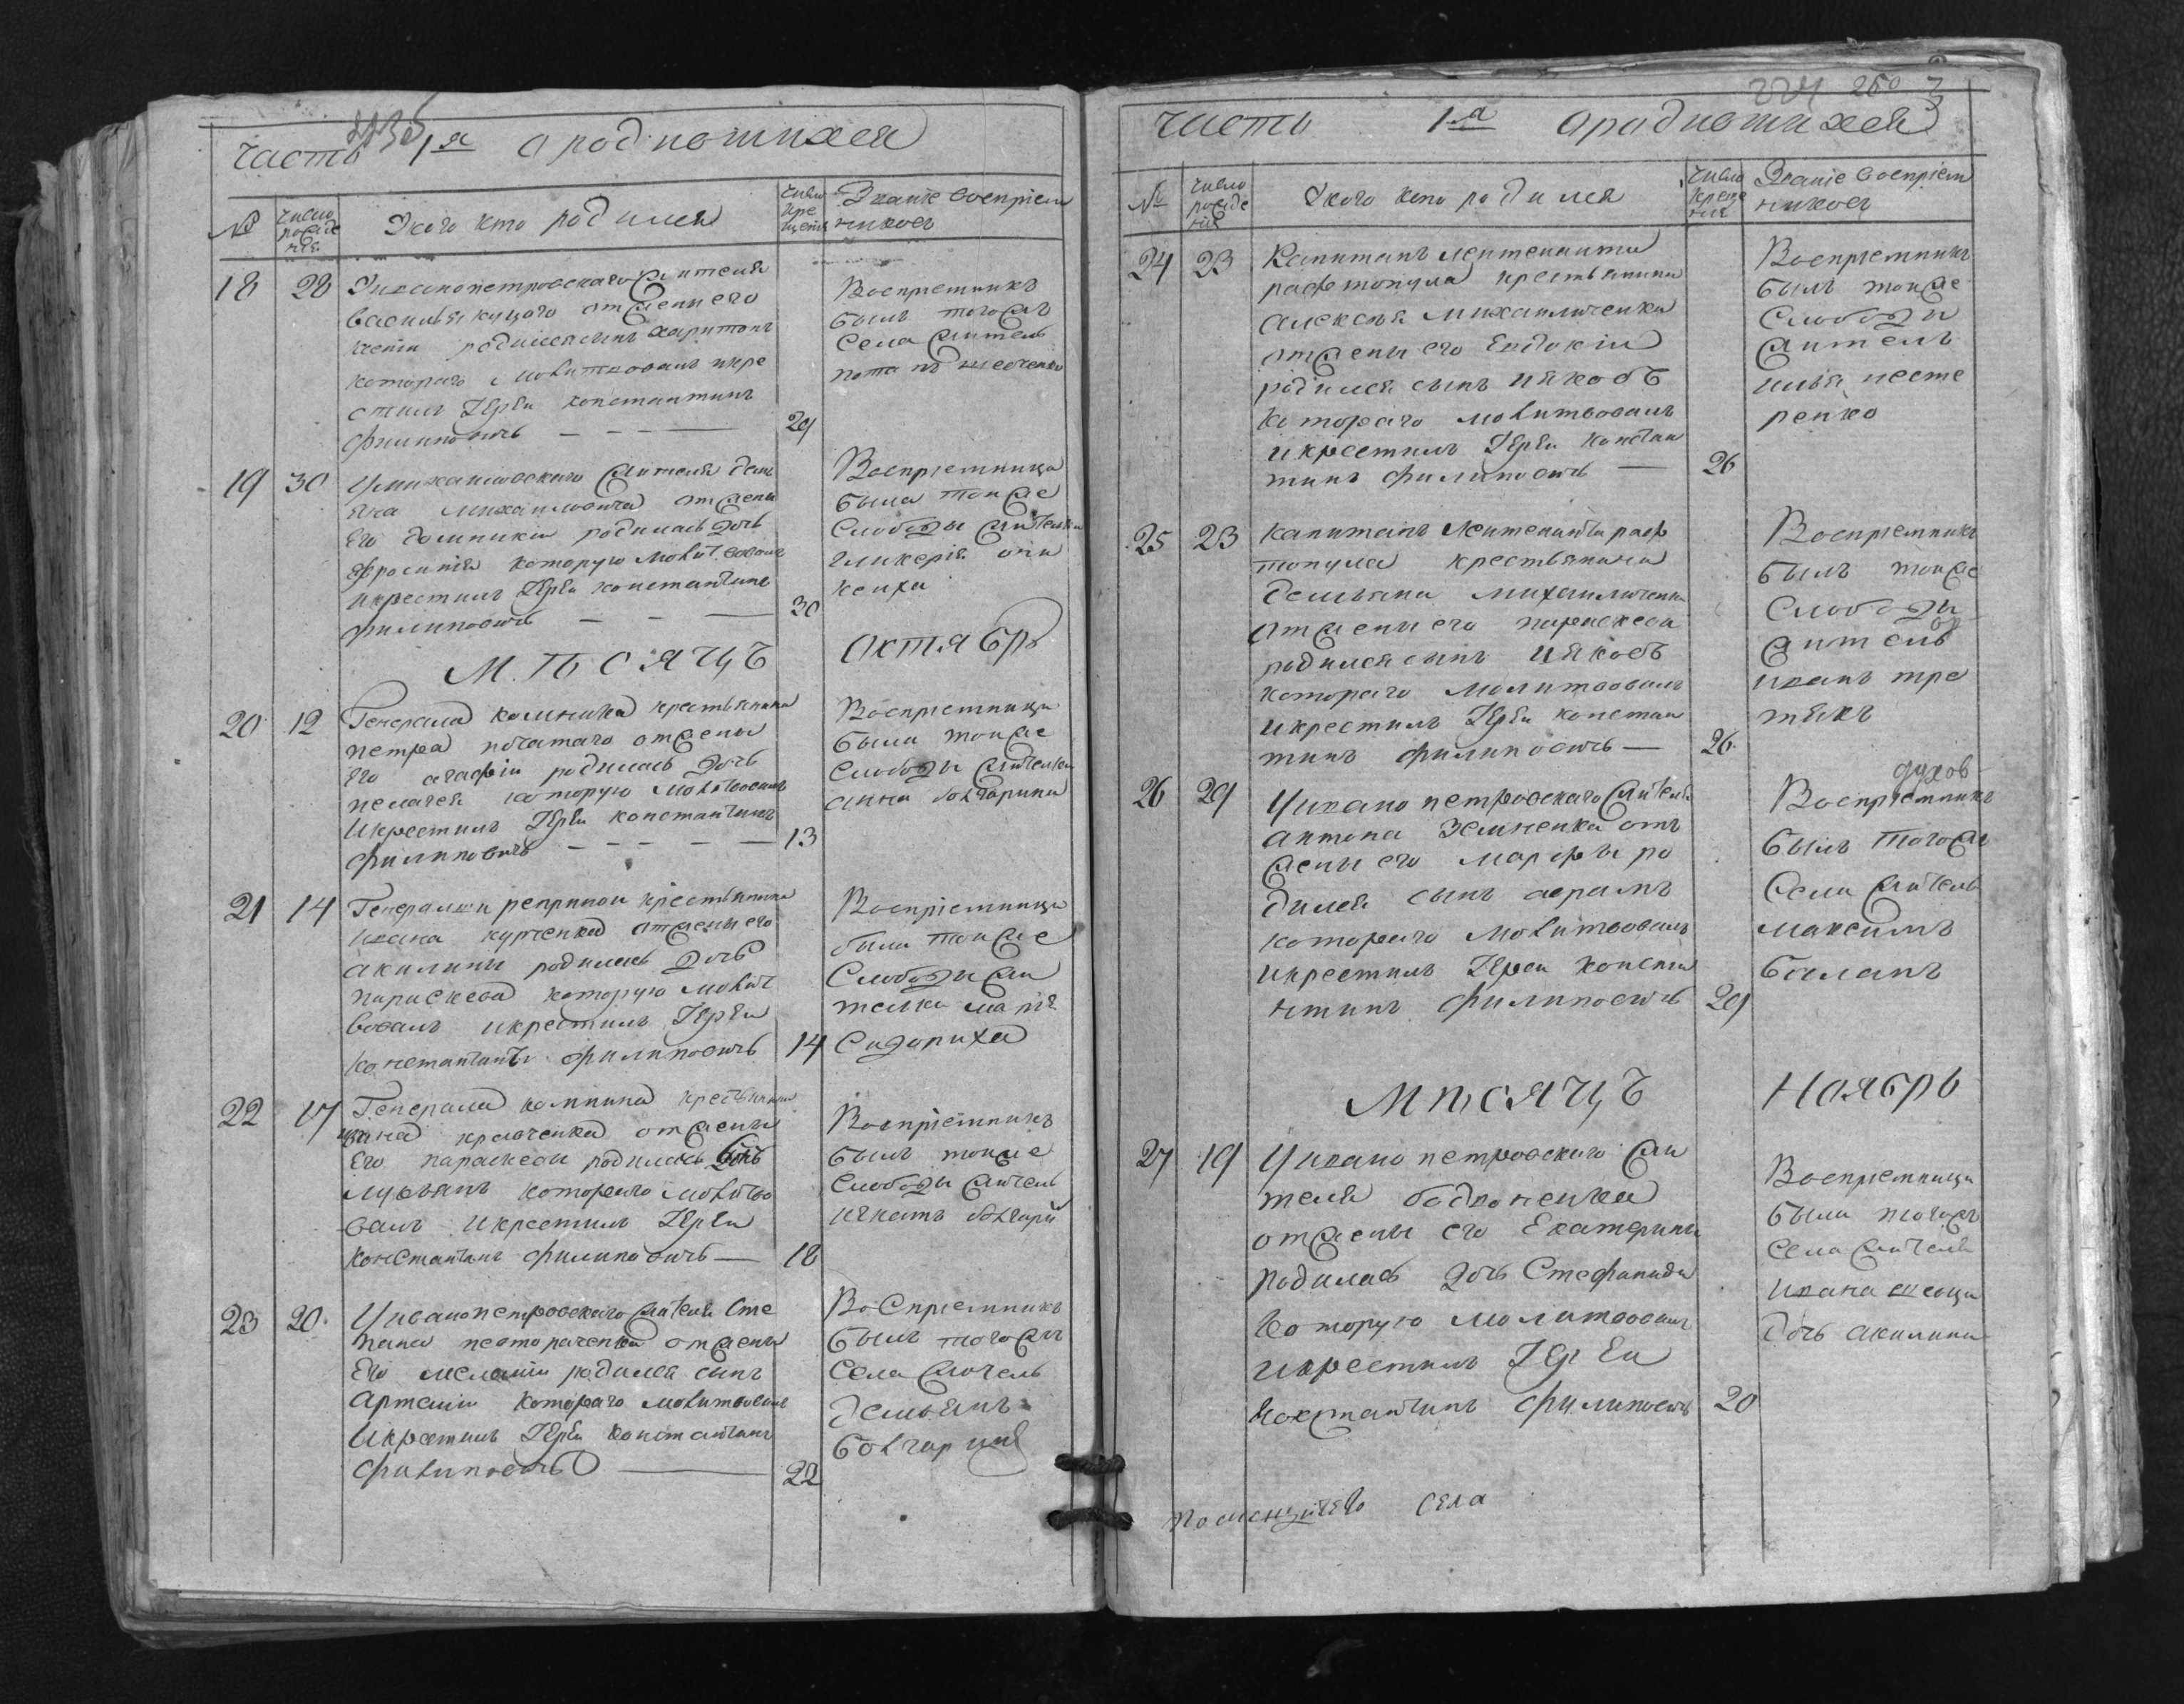 часть 1я о родившихся
№
число рожде нія
У кого кто родился
число кре щенія
Званіе воспріем никовъ
18 28 У ивано петровскаго жителя
василья куцаго отжены его
родился сынъ харитонъ
котораго молитвовалъ икре
стилъ Іерей константинъ
филиповичь 29
Воспріемникъ
былъ тогожъ
села житель
19 30 У михайловскаго жителя демь
яна михайловича отжены
Его домникіи родилась дочь
ефросинія которую молитвовалъ
икрестилъ Іерей константинъ
филиповичь 30
Воспріемница
была тойже
слободы жителька
гликерія
МѢСЯЦЪ октябрь
20 12 Генерала комнина крестьянина
петра початаго отжены
Его агафіи родилась дочь
пелагея которую молитвовалъ
икрестилъ Іерей константинъ
филиповичь 13
Воспріемница
была тойже
слободы жителька
анна болгарина
21 14 Генеральши реприной крестьянина
ивана курченка отжены его
акилины родилась дочь
параскева которую молит
вовалъ икрестилъ Іерей
константинъ филиповичь 14
Воспріемница
была тойже
слободы жи
телка марія
Сидариха
22 17 Генерала комнина крестьянина
кравченка отжены
Его параскевы родилась
лукьянъ котораго молитво
валъ икрестилъ Іерей
константинъ филиповичь 18
Воспріемникъ
былъ тойже
слободы житель
игнатъ болгаръ
23 20 У иванопетровскаго жителя сте
пана несторяченка отжены
Его меланіи родился сынъ
артемій котораго молитвовалъ
икрестилъ Іерей константинъ
филиповичь 22
Воспріемникъ
былъ тогожъ
села житель
демьянъ
болгаринъ
часть 1я о родившихся
224 250
№
число рожде нія
У кого кто родился
число креще нія
Званіе воспріем никовъ
24 23 Капитанъ лейтенанта
рафтопула крестьянина
алексѣя михайличенка
отжены его Евдокіи
родился сынъ иякобъ
котораго молитвовалъ
икрестилъ Іерей констан
тинъ филиповичь 26
Воспріемникъ
былъ тойже
слободы
житель
илья несте
ренко
25 23 капитанъ лейтенанта раф
топула крестьянина
демьяна михайличенка
отжены его параскевы
родился сынъ иякобъ
котораго молитвовалъ
икрестилъ Іерей констан
тинъ филиповичь 26
Воспріемникъ
былъ тойже
слободы
житель
иванъ тре
тякъ
26 29 У ивано петровскаго жителя
антона зелненка отъ
жены его марфы ро
дился сынъ аврамъ
котораго молитвовалъ
икрестилъ Іерей конста
нтинъ филиповичь 29
Воспріемникъ
былъ тогожъ
села житель
максимъ
баланъ
МѢСЯЦЪ Ноябрь
27 19 У ивано петровскаго жи
теля
отжены его Екатерины
родилась дочь Стефанида
которую молитвовалъ
икрестилъ Іерей
константинъ филиповичь 20
Воспріемница
была тогожъ
села жителя
ивана швеца
дочь акилина
села